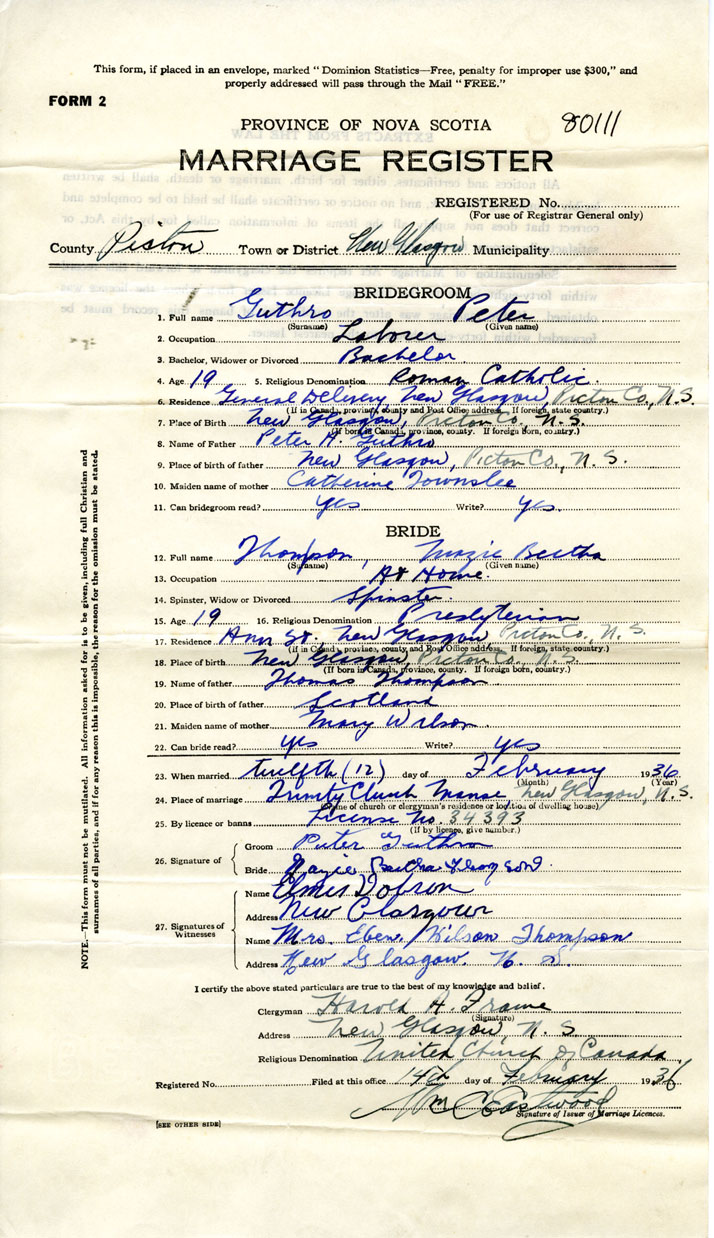 This form, if placed in an envelope, marked "Dominion Statistics—Free, penalty for improper use $300," and
properly addressed will pass through the Mail "FREE."
FORM 2
PROVINCE OF NOVA SCOTIA 80111
MARRIAGE REGISTER
REGISTERED No.
(For use of Registrar General only)
County Pictou Town or District New Glasgow Municipality
BRIDEGROOM
1. Full name Guthro Peter
(Surname) (Given name)
2. Occupation Laborer
3. Bachelor, Widower or Divorced Bachelor
4. Age 19 5. Religious Denomination Roman Catholic
6. Residence General Delivery New Glasgow, Pictou Co., N.S.
(If in Canada, province, county and Post Office address. If foreign, state country.)
7. Place of Birth New Glasgow, Pictou Co., N.S.
(If born in Canada, province, county. If foreign born, country.)
8. Name of Father Peter A. Guthro
9. Place of birth of father New Glasgow, Pictou Co., N.S.
10. Maiden name of mother Catherine Townslee
11. Can bridegroom read? yes Write? yes.
BRIDE
12. Full name Thompson, Mazie Beatha
(Surname) (Given name)
13. Occupation At Home.
14. Spinster, Widow or Divorced Spinster.
15. Age 19 16. Religious Denomination Presbyterian
17. Residence Ann St. New Glasgow Pictou Co., N.S.
(If in Canada, province, county and Post Office address. If foreign, state country.)
18. Place of birth New Glasgow, Pictou Co., N.S.
(If born in Canada, province, county. If foreign born, country.)
19. Name of father Thomas Thompson
20. Place of birth of father Scotland
21. Maiden name of mother Mary Wilson.
22. Can bride read? yes Write? yes
23. When married twelfth (12) day of February 1936
(Month) (Year)
24. Place of marriage Trinity Church Manse New Glasgow, N.S.
(Name of church or clergyman's residence or location of dwelling house)
25. By licence or banns License No. 34393
(If by licence, give number.)
26. Signature of
Groom Peter Guthro
Bride Mazie Beatha Thompson.
27. Signatures of
Witnesses
Name Dobson
Address New Glasgow
Name Mrs. Eben. Wilson Thompson
Address New Glasgow. N. S.
I certify the above stated particulars are true to the best of my knowledge and belief.
Clergyman Harold A. Frame
(Signature)
Address New Glasgow, N.S
Religious Denomination United Church of Canada
Registered No. Filed at this office 14th day of February 1936
Wm C Eastwood
Signature of Issuer of Marriage Licences.
[SEE OTHER SIDE]
NOTE.—This form must not be mutilated. All information asked for is to be given, including full Christian and
surnames of all parties, and if for any reason this is impossible, the reason for the omission must be stated.